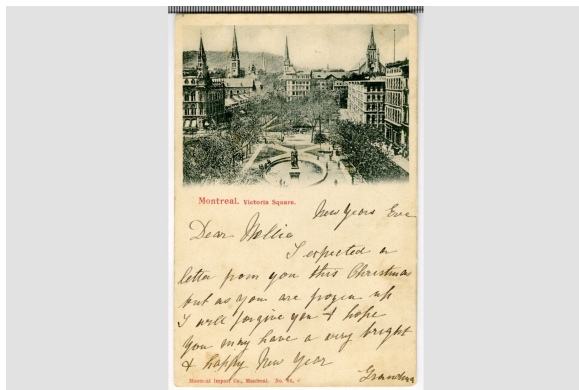 Montreal. Victoria Square.
New Years Eve
Dear Mollie
I expected a
letter from you this Christmas
but as you are frozen up
I will forgive you & hope
you may have a very bright
& happy New Year
Grandma
Montreal Import Co., Montreal. No.